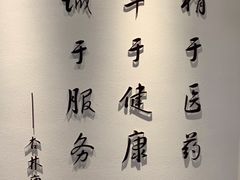 精于医药
于健康
诚于服务
——杏林